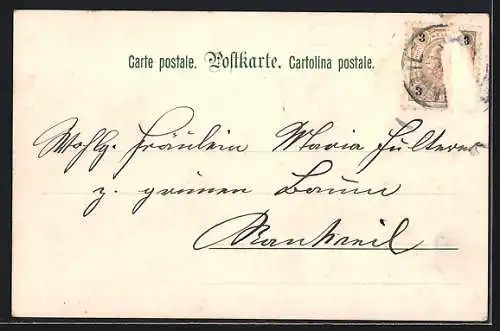 Carte postale. Postkarte. Cartolina postale.
3 3
3
Wohlg. Fräulein Maria
z. grünen Baum
Rankweil